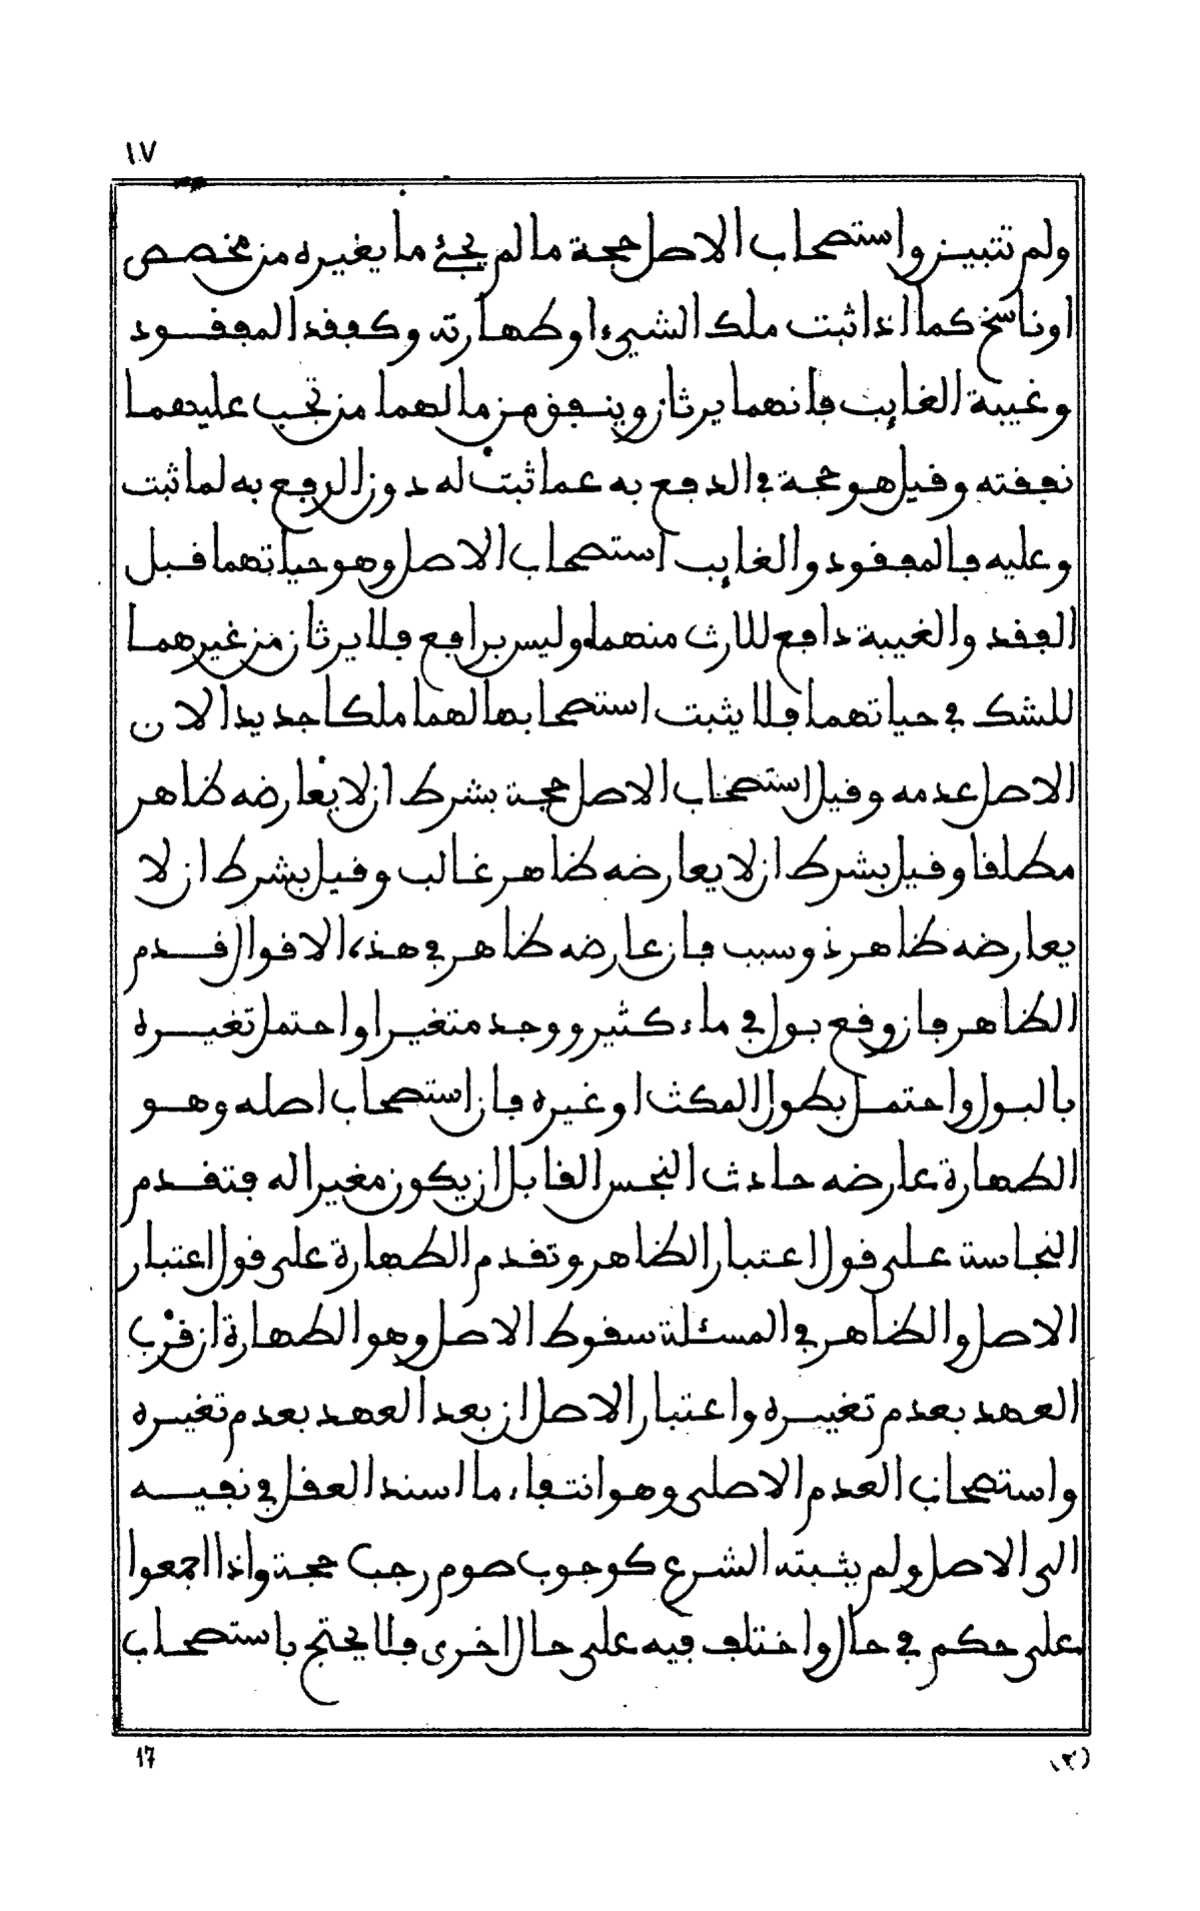 ١٧
ولم تتبين واستصحاب الاصل حجة ما لم يجئ ما يغيره من مخصص
او ناسخ كما اذا ثبت ملك الشيء او طهارته وكفقد المفقود
وغيبة الغايب فانهما يرثان وينفق من مالهما من تجب عليهما
نفقته وقيل هو حجة في الدفع به عما ثبت له دون الرفع به لما ثبت
وعليه فالمفقود والغايب استصحاب الاصل وهو حياتهما قبل
الفقد والغيبة دافع للارث منهما وليس برافع فلا يرثان من غيرهما
للشك في حياتهما فلا يثبت استصحابها لهما ملكا جديدا لان
الاصل عدمه وقيل استصحاب الاصل حجة بشرط ان لا يعارضه ظاهر
مطلقا وقيل بشرط ان لا يعارضه ظاهر غالب وقيل بشرط ان لا
يعارضه ظاهر ذو سبب فان عارضه ظاهر في هذه الاقوال قدم
الظاهر فان وقع بول في ماء كثير ووجد متغيرا واحتمل تغيره
بالبول واحتمل بطول المكث او غيره فان استصحاب اصله وهو
الطهارة عارضه حادث النجس القابل ان يكون مغيرا له فتقدم
النجاسة على قول اعتبار الظاهر وتقدم الطهارة على قول اعتبار
الاصل والظاهر في المسئلة سقوط الاصل وهو الطهارة ان قرب
العهد بعدم تغيره واعتبار الاصل ان بعد العهد بعدم تغيره
واستصحاب العدم الاصلي وهو انتفاء ما اسند العقل في نفيه
الى الاصل ولم يثبته الشرع كوجوب صوم رجب حجة واذا اجمعوا
على حكم في حال واختلف فيه على حال اخرى فلا يحتج باستصحاب
17
(٢)